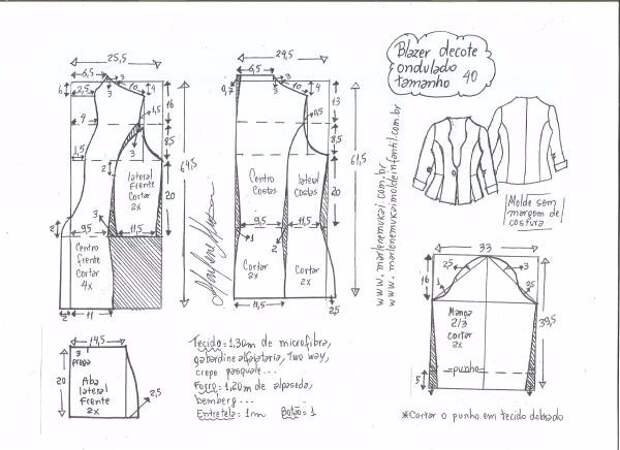 Blazer decote
ondulado
tamanho 40
25,5
6,5
3
3
10
4
2,5
4,5
9
3
1,5
2
16
8,5
20
64,5
lateral
Frente
Cortar
2x
3
2
9,5
11,5
Centro
frente
Cortar
4x
2
11
24,5
6,5
0,7
3
10
4
1,5
13
8,5
20
61,5
Centro
Costas
lateral
Costas
9,5
11,5
1
2
Cortar
2x
Cortar
2x
14,5
2,5
www.marlenemukai.com.br
www.marlenemukaimoldeinfantil.com.br
Molde sem
margem de
costura
33
2,5
3
1
2,5
16
39,5
Manga
2/3
cortar
2x
=punho=
5
*Cortar o punho em tecido dobrado
14,5
3
prega
20
Aba
lateral
Frente
2x
2,5
Tecido=1,30m de microfibra,
gabardine alfaiataria, two way,
crepe pasquale...
Forro=1,20m de alpaseda,
bemberg...
Entretela=1m Botão=1